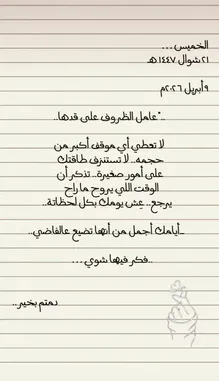 الخميس ...
٢١ شوال ١٤٤٧هـ
٩ أبريل ٢٠٢٦م
.."عامل الظروف على قدها..
لا تعطي أي موقف أكبر من
حجمه.. لا تستنزف طاقتك
على أمور صغيرة.. تذكر أن
الوقت اللي يروح ما راح
يرجع.. عِش يومك بكل لحظاتة..
_أيامك أجمل من أنها تضيع عالفاضي..
..فكر فيها شوي ...
دمتم بخير..